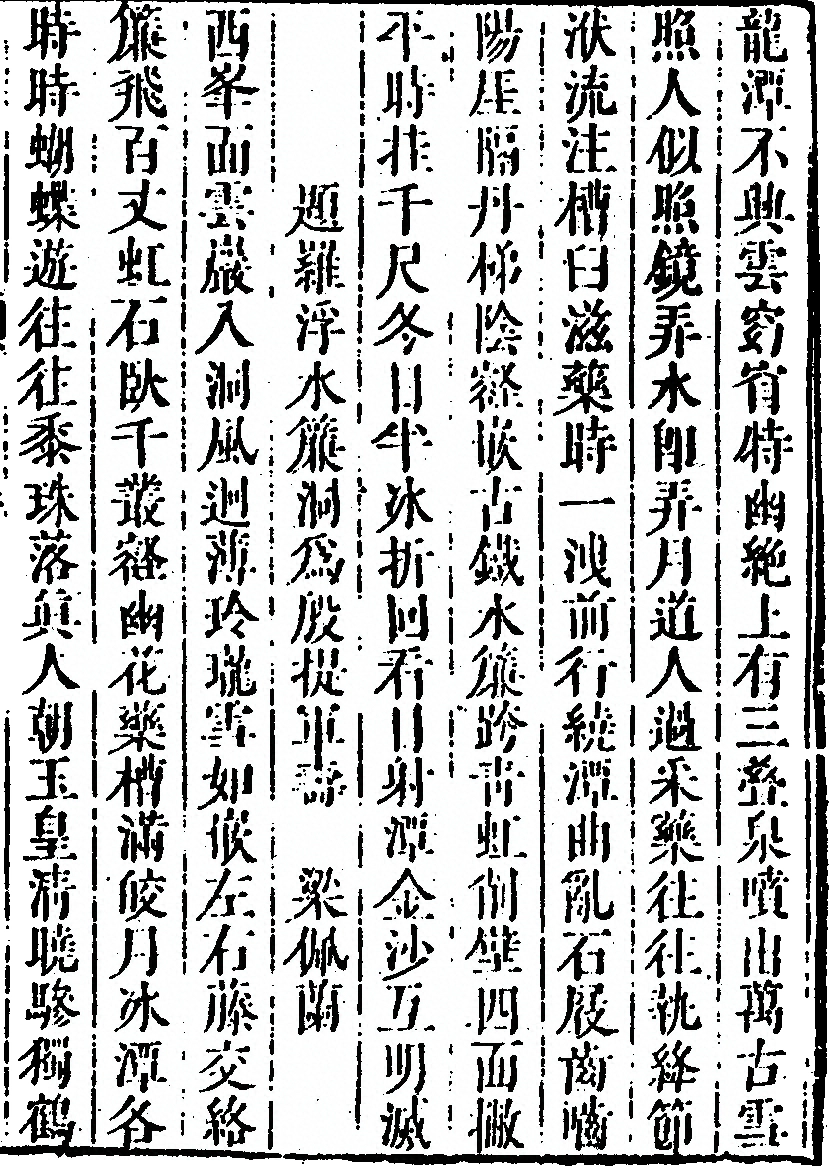 龍潭不與雲窈窅特幽絶上有三叠泉噴出萬古雪
照人似照鏡弄水酣弄月道人過采藥往往執絳節
洑流注槽臼滋藥時一洩前行繞潭曲亂石屐齒嚙
陽厓隔丹梯陰壑嵌古鐵水簾跨青虹削壁四面撇
平時挂千尺冬日半冰折回看日射潭金沙互明滅
題羅浮水簾洞爲殷提軍壽 梁佩蘭
西峯面雲巖入洞風迴薄玲瓏雪如嵌左右藤交絡
簾飛百丈虹石臥千叢壑幽花藥槽滿皎月冰潭各
時時蝴蝶遊往往黍珠落與人朝玉皇清曉驂獨鶴